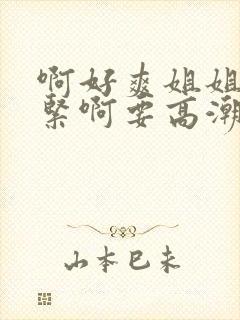 啊好爽姐姐
紧啊要高潮
山本巳未